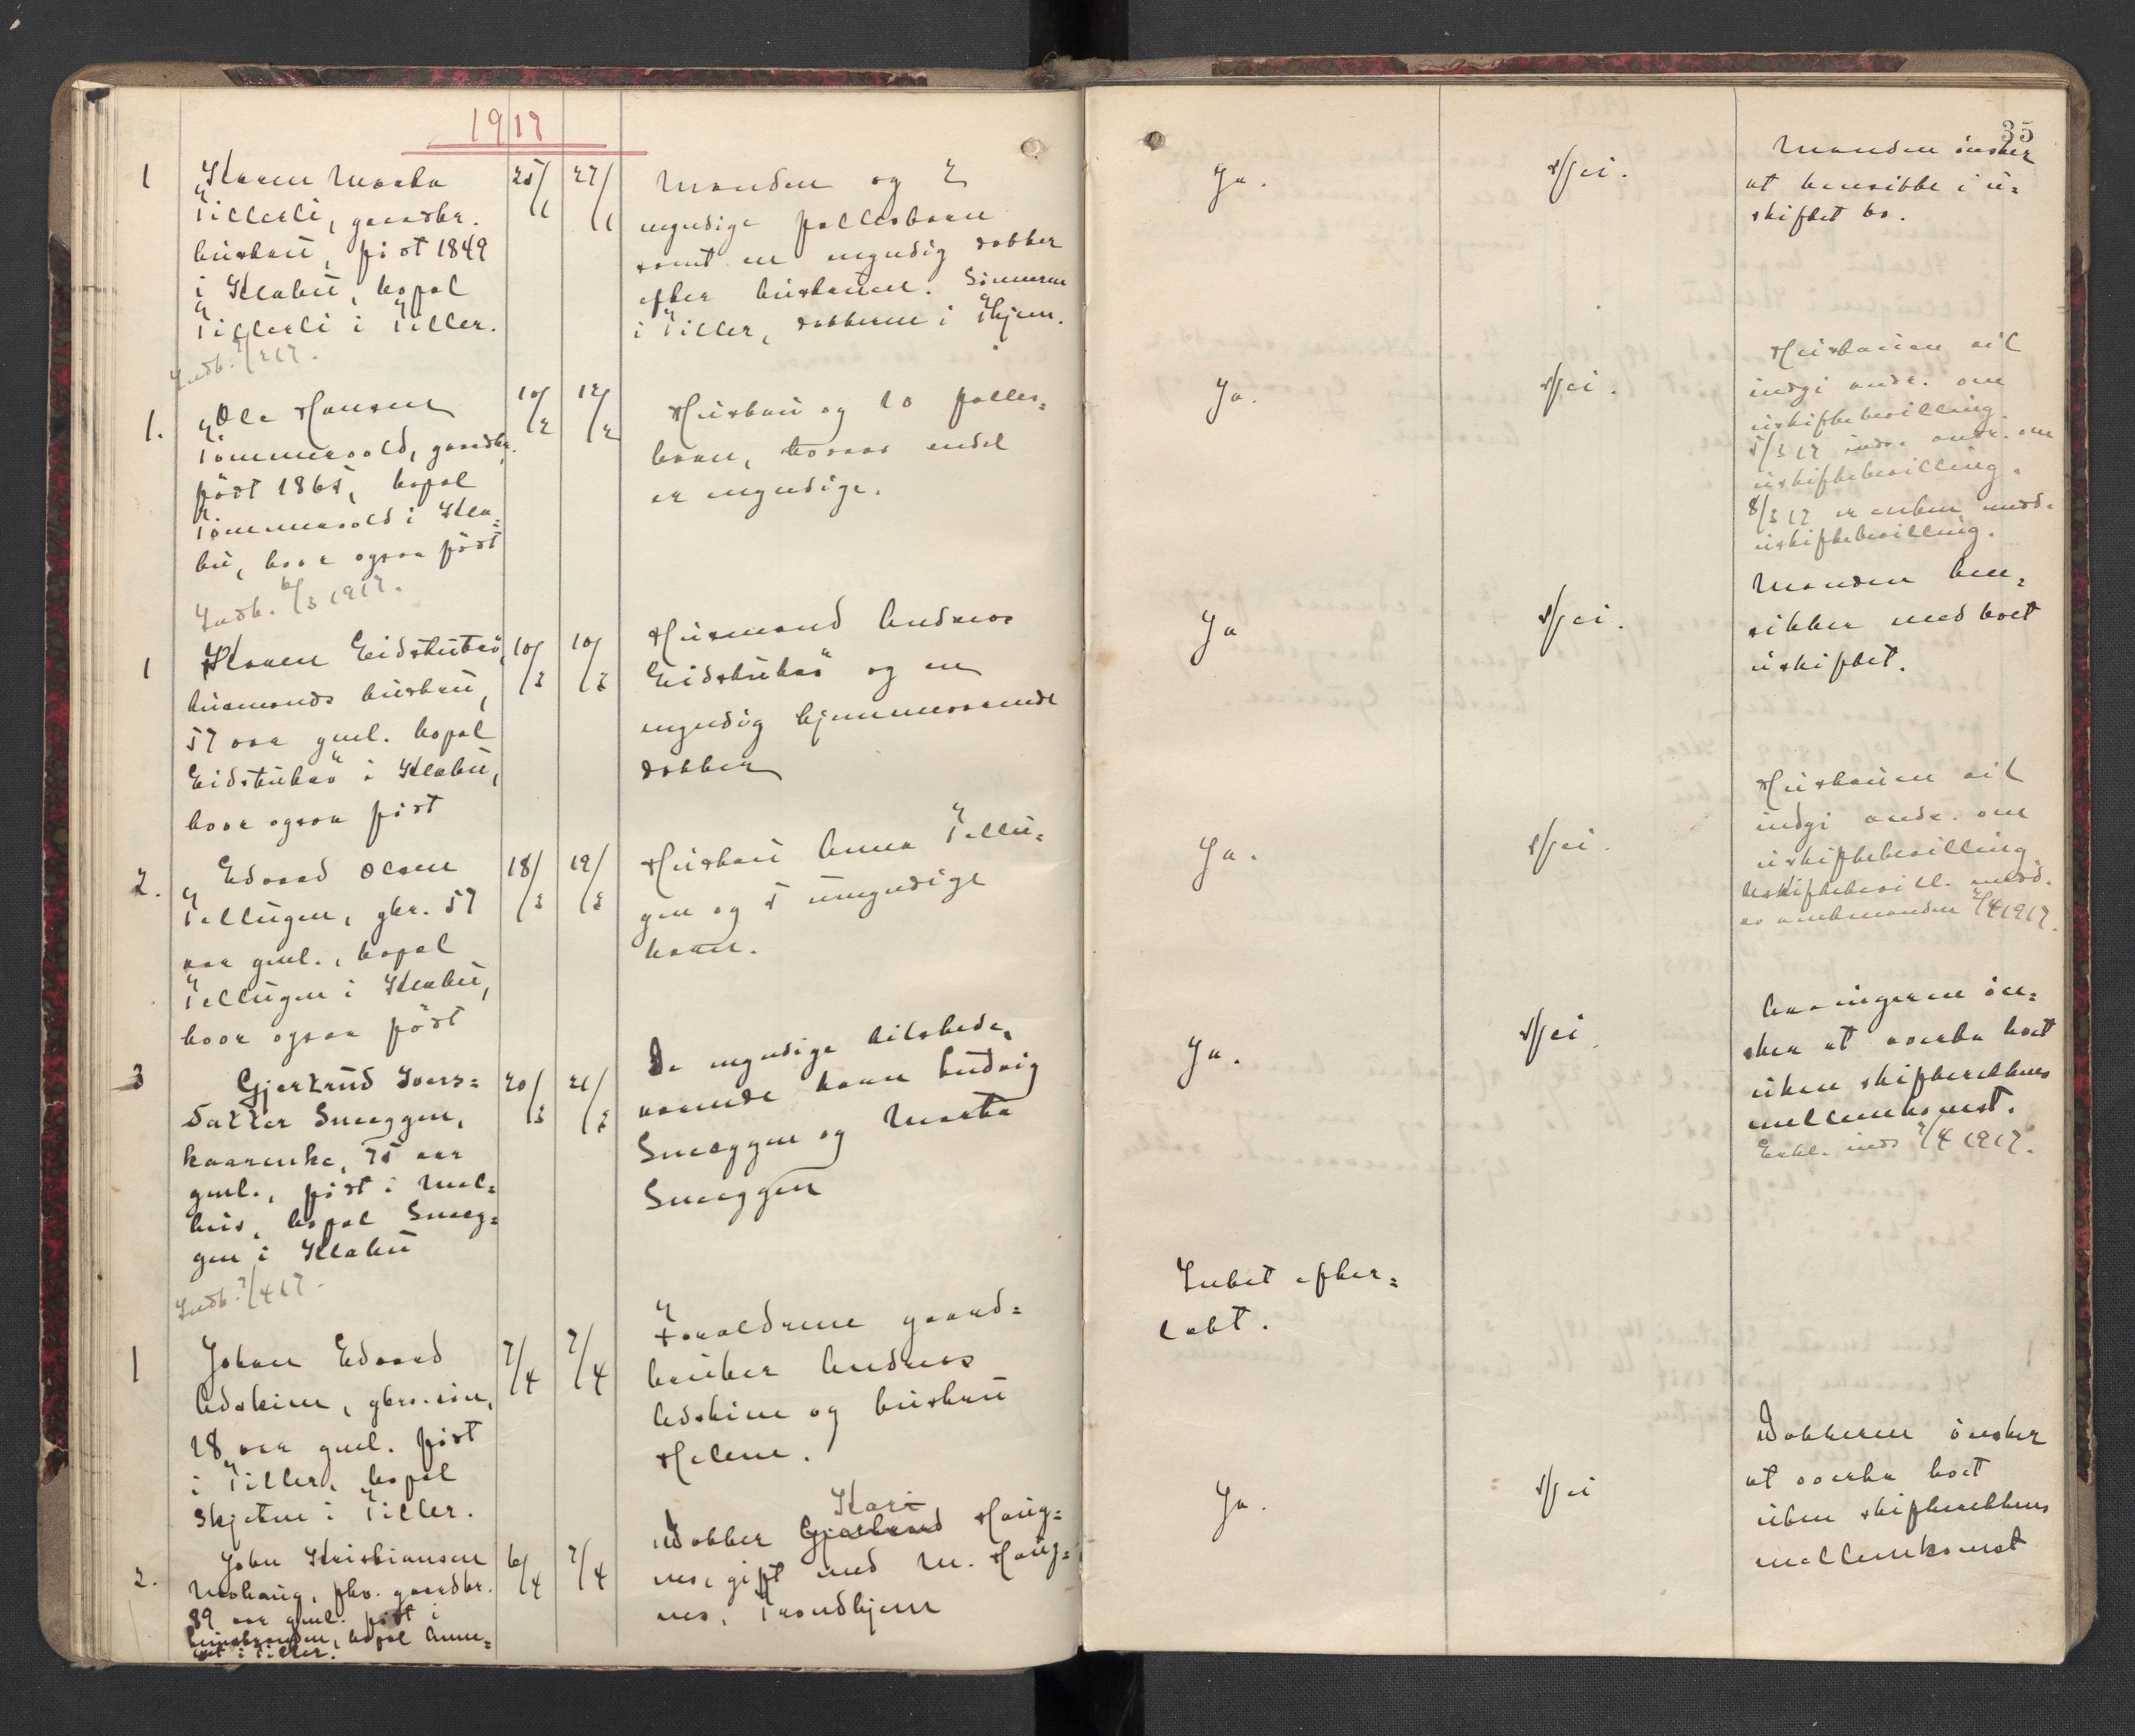 1917
35
1
Karen Marta
Tillerli, gaardbr.
hustru, født 1849
i Klæbu, bopæl
Tillerli i Tiller.
Indb. 217.
25/1
27/1
Manden og 2
myndige fællesbarn
samt en myndig datter
efter hustruen. Sønnerne
i Tiller, datteren i Thjem.
Ja.
Nei.
Manden ønsker
at hensitte i u-
skiftet bo.
1.
Ole Hansen
Tømmervold, gaardbr.
født 1865, bopæl
Tømmervold i Klæ-
bu, hvor ogsaa født
Indb. 6/3 1917.
10/2
12/2
Hustru og 10 fælles-
barn, hvorav endel
er myndige.
Ja.
Nei.
Hustruen vil
indgi andr. om
uskiftebevilling.
5/3 17 inds. andr. om
uskiftebevilling.
8/3 17 er enken medd.
uskiftebevilling.
1
Karen Eidstutrø,
husmands hustru,
57 aar gml. bopæl
Eidstutrø i Klæbu,
hvor ogsaa født
10/3
10/3
Husmand Andreas
Eidstutrø og en
myndig hjemmeværende
datter
Ja
Nei.
Manden hen-
sitter med boet
uskiftet.
2.
Edvard Olsen
Tellugen, gbr. 57
aar gml., bopæl
Tellugen i Klæbu,
hvor ogsaa født
18/3
19/3
Hustru Anna Tellu-
gen og 5 umyndige
barn.
Ja.
Nei.
Hustruen vil
indgi andr. om
uskiftebevilling.
Uskiftebevill. medd.
av amtmanden 2/4 1917.
3
Gjertrud Ivers-
datter Smeggen,
kaarenke, 75 aar
gml., født i Mel-
hus, bopæl Smeg-
gen i Klæbu
Indb. 2/4 17.
20/3
21/3
De myndige tilstede-
værende barn Ludvig
Smeggen og Marta
Smeggen
Ja.
Nei
Arvingerne øn-
sker at overta boet
uten skifterettens
mellemkomst.
Erkl. inds. 2/4 1917.
1
Johan Edvard
Udstim, gbrs. søn,
18 aar gml. født
i Tiller, bopæl
Skjetne i Tiller.
7/4
7/4
Forældrene gaard-
bruker Andreas
og hustru
Helene.
Intet efter-
latt.
2.
John Kristiansen
Mohaug, fhv. gaardbr.
89 aar gml. født i
bopæl
i Tiller.
6/4
7/4
Datter Gjertrud Kari Haug-
nes, gift med M. Haug-
nes, Trondhjem
Ja.
Nei
Datteren ønsker
at overta boet
uten skifterettens
mellemkomst